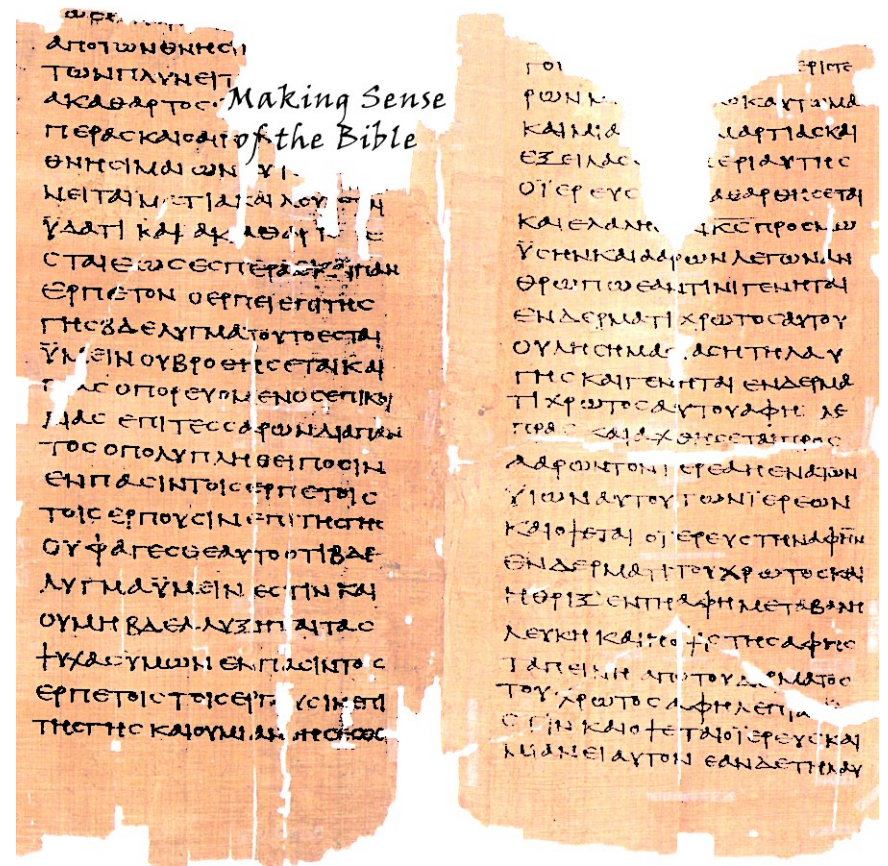 ΑΠΟΤΩΝΘΝΗϹΙ
ΤΩΝΠΛΥΝΕΙΤ
ΑΚΑΘΑΡΤΟϹ
ΠΕΡΑϹΚΑΙΟΑΙΡ
ΘΝΗϹΙΜΑΙΩΝ
ΝΕΙΤΑΙΜΑΤΙΑΚΑΙΛΟΥ
ΫΔΑΤΙ ΚΑΙ ΑΚΑΘΑΡΤ Ε
ϹΤΑΙΕΩϹΕϹΠΕΡΑϹΚΑΙΠΑΝ
ΕΡΠΕΤΟΝ ΟΕΡΠΕΙΕΠΙΤΗϹ
ΓΗϹΒΔΕΛΥΓΜΑΤΟΥΤΟΕϹΤΑΙ
ΫΜΕΙΝΟΥΒΡΟΘΗϹΕΤΑΙΚΑΙ
ΑϹΟΠΟΡΕΥΟΜΕΝΟϹΕΠΙΚΟΙ
ΛΙΑϹ ΕΠΙΤΕϹϹΑΡΩΝΔΙΑΠΑΝ
ΤΟϹΟΠΟΛΥΠΛΗΘΕΙΠΟϹΙΝ
ΕΝΠΑϹΙΝΤΟΙϹΕΡΠΕΤΟΙϹ
ΤΟΙϹΕΡΠΟΥϹΙΝΕΠΙΤΗϹΓΗϹ
ΟΥΦΑΓΕϹΘΕΑΥΤΟΟΤΙΒΔΕ
ΛΥΓΜΑΫΜΕΙΝΕϹΤΙΝΚΑΙ
ΟΥΜΗΒΔΕΛΛΥΞΗΤΑΙΤΑϹ
ΨΥΧΑϹΥΜΩΝΕΝΠΑϹΙΝΤΟ Ϲ
ΕΡΠΕΤΟΙϹΤΟΙϹΕΡΠ ΥϹΙΝΕΠΙ
ΤΗϹΓΗϹΚΑΙΟΥΜΙΑΝ
Making Sense
of the Bible
ΓΟΙ ΕΡΙϹΤΕ
ΡΩΝ ΚΑΥΤΩΜΑ
ΚΑΙΜΙΑ ΜΑΡΤΙΑϹΚΑΙ
ΕΞΕΙΛΑϹ ΕΡΙΑΥΤΗϹ
ΟΪΕΡΕΥϹ ΑΘΑΡΘΗϹΕΤΑΙ
ΚΑΙΕΛΑΛΗ ΚϹΠΡΟϹΜΩ
ΫϹΗΝΚΑΙΑΑΡΩΝΛΕΓΩΝΑΝ
ΘΡΩΠΩΕΑΝΤΙΝΙΓΕΝΗΤΑΙ
ΕΝΔΕΡΜΑΤΙΧΡΩΤΟϹΑΥΤΟΥ
ΟΥΛΗϹΗΜΑϹ ΑϹΗΤΗΛΑΥ
ΓΗϹΚΑΙΓΕΝΗΤΑΙΕΝΔΕΡΜΑ
ΤΙΧΡΩΤΟϹΑΥΤΟΥΑΦΗ ΛΕ
ΠΡΑϹ ΚΑΙΑΧΘΗϹΕΤΑΙΠΡΟϹ
ΑΑΡΩΝΤΟΝΙΕΡΕΑΗΕΝΑΤΩΝ
ΫΙΩΝΑΥΤΟΥΤΩΝΪΕΡΕΩΝ
ΚΑΙΟΨΕΤΑΙΟΪΕΡΕΥϹΤΗΝΑΦΗΝ
ΕΝΔΕΡΜΑΤΙΤΟΥΧΡΩΤΟϹΚΑΙ
ΗΘΡΙΞΕΝΤΗΑΦΗΜΕΤΑΒΑΛΗ
ΛΕΥΚΗΚΑΙΗΟΨΙϹΤΗϹΑΦΗϹ
ΤΑΠΕΙΝΗΑΠΟΤΟΥΔΕΡΜΑΤΟϹ
ΤΟΥΧΡΩΤΟϹΑΦΗΛΕΠΡΑ
ϹΤΙΝΚΑΙΟΨΕΤΑΙΟΪΕΡΕΥϹΚΑΙ
ΜΙΑΝΕΙΑΥΤΟΝΕΑΝΔΕΤΗΛΑΥ